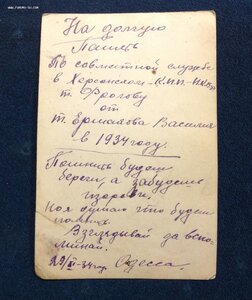 www.forums-su.com
На долгую
Память
По совмитной службе
в Херсонском К.П.П. НКВД
т. Фрогову
от
т. Ермакова Василия
в 1934 году.
Помнить будеш
береги, а забудеш
изорви.
Но я думаю что будеш
помнить.
Взглядывай да вспо-
минай.
Одесса.